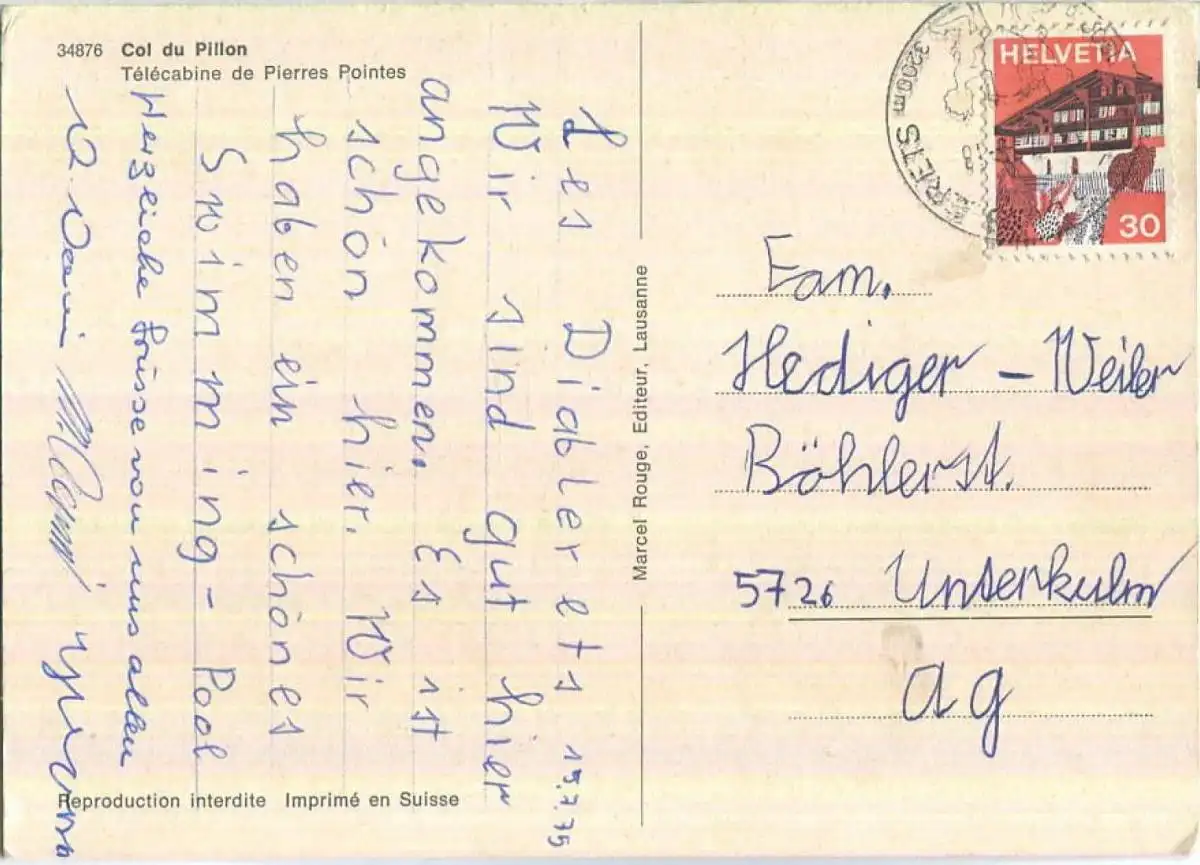 34876 Col du Pillon
Télécabine de Pierres Pointes
Les Diablerets 15.7.75
Wir sind gut hier
angekommen. Es ist
schön hier. Wir
haben ein schönes
Swimming-Pool
Herzliche Grüsse von uns allen
HELVETIA
30
Fam.
Hediger - Weiler
Böhlerst.
5726 Unterkulm
ag
Marcel Rouge, Editeur, Lausanne
Reproduction interdite Imprimé en Suisse